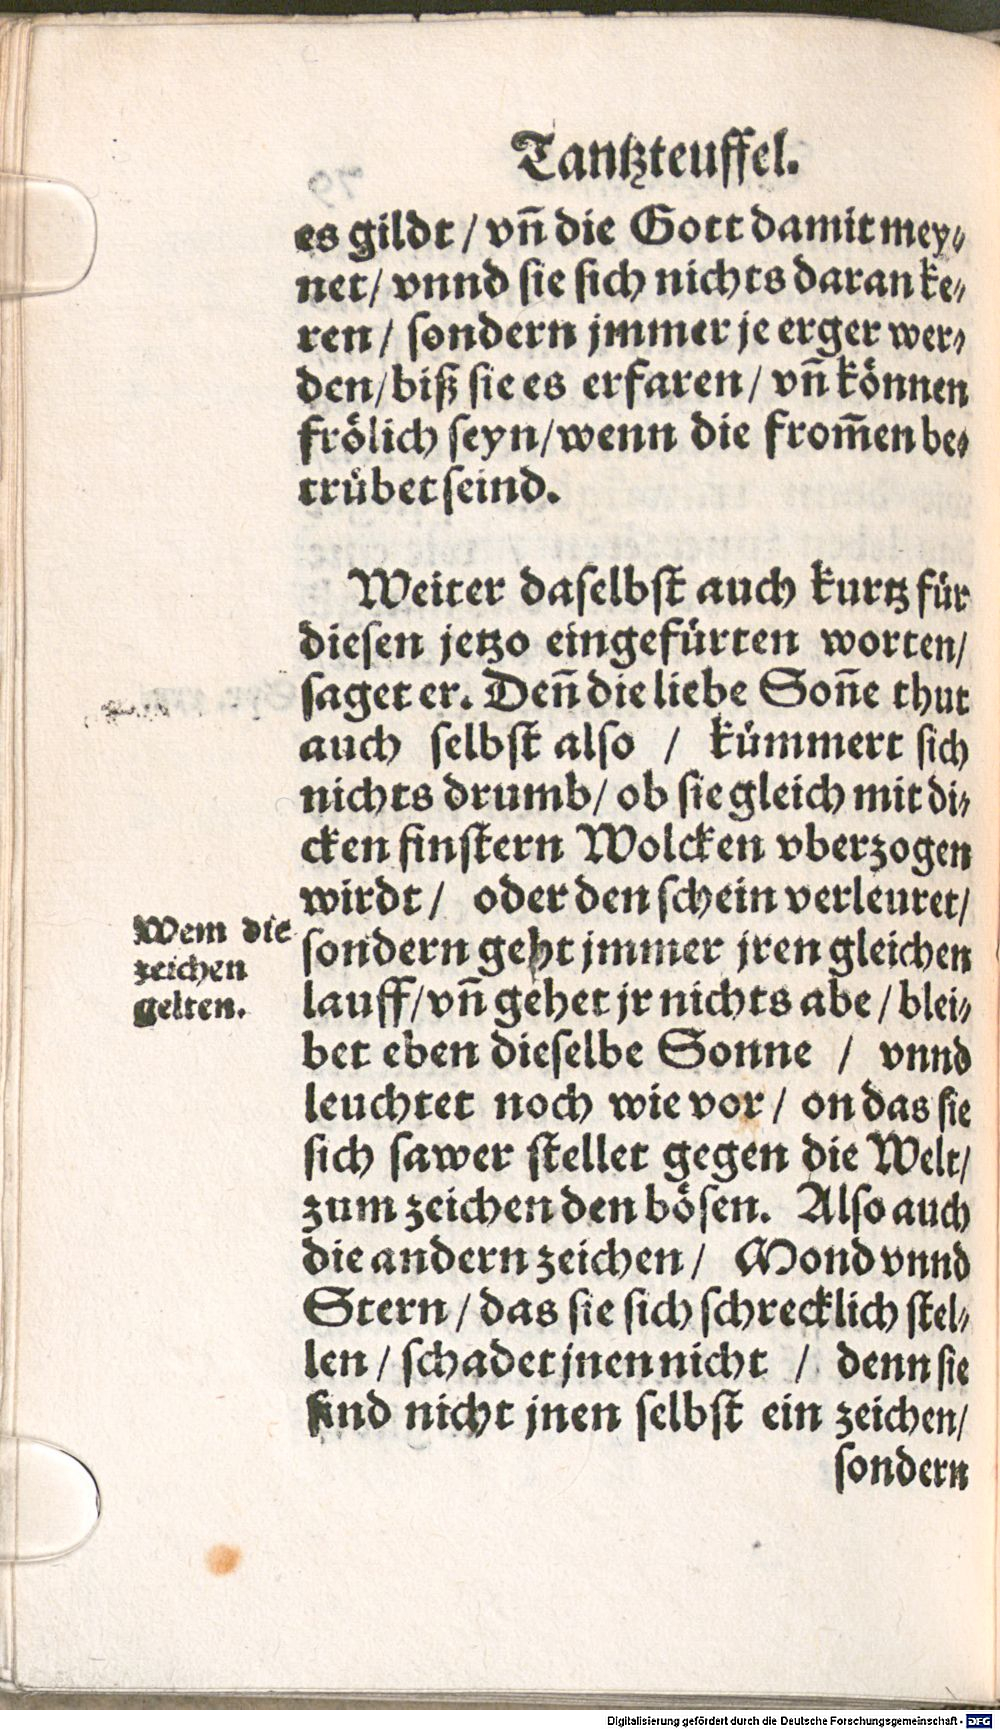 Tantzteuffel.
es gildt / vñ die Gott damit mey⸗
net / vnnd sie sich nichts daran ke⸗
ren / sondern jmmer je erger wer⸗
den / biß sie es erfaren / vñ können
frölich seyn / wenn die from̃en be⸗
trübet seind.
Weiter daselbst auch kurtz für
diesen jetzo eingefürten worten /
saget er. Deñ die liebe Soñe thut
auch selbst also / kümmert sich
nichts drumb / ob sie gleich mit di⸗
cken finstern Wolcken vberzogen
wirdt / oder den schein verleuret /
sondern geht jmmer jren gleichen
lauff / vñ gehet jr nichts abe / blei⸗
bet eben dieselbe Sonne / vnnd
leuchtet noch wie vor / on das sie
sich sawer stellet gegen die Welt /
zum zeichen den bösen. Also auch
die andern zeichen / Mond vnnd
Stern / das sie sich schrecklich stel⸗
len / schadet jnen nicht / denn sie
sind nicht jnen selbst ein zeichen /
sondern
Wem die
zeichen
gelten.
Digitalisierung gefördert durch die Deutsche Forschungsgemeinschaft - DFG